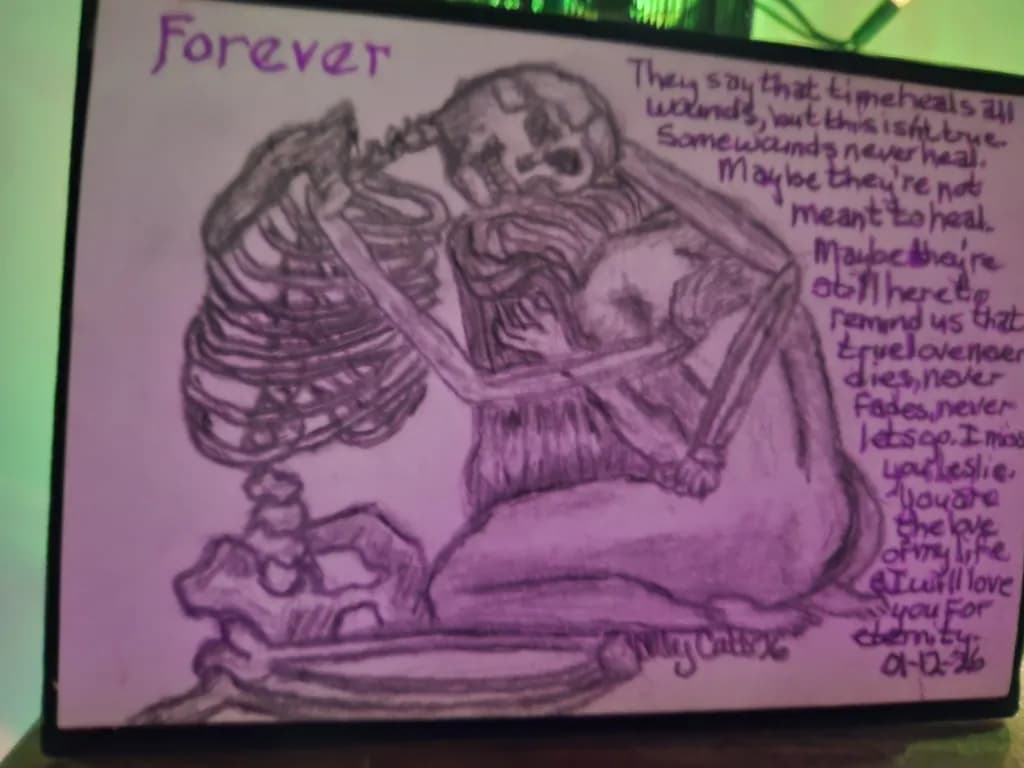 Forever
They say that time heals all
wounds, but this isn't true.
Some wounds never heal.
Maybe they're not
meant to heal.
Maybe they're
still here to
remind us that
true love never
dies, never
fades, never
lets go. I miss
you Leslie.
You are
the love
of my life
& I will love
you for
eternity.
01-12-26